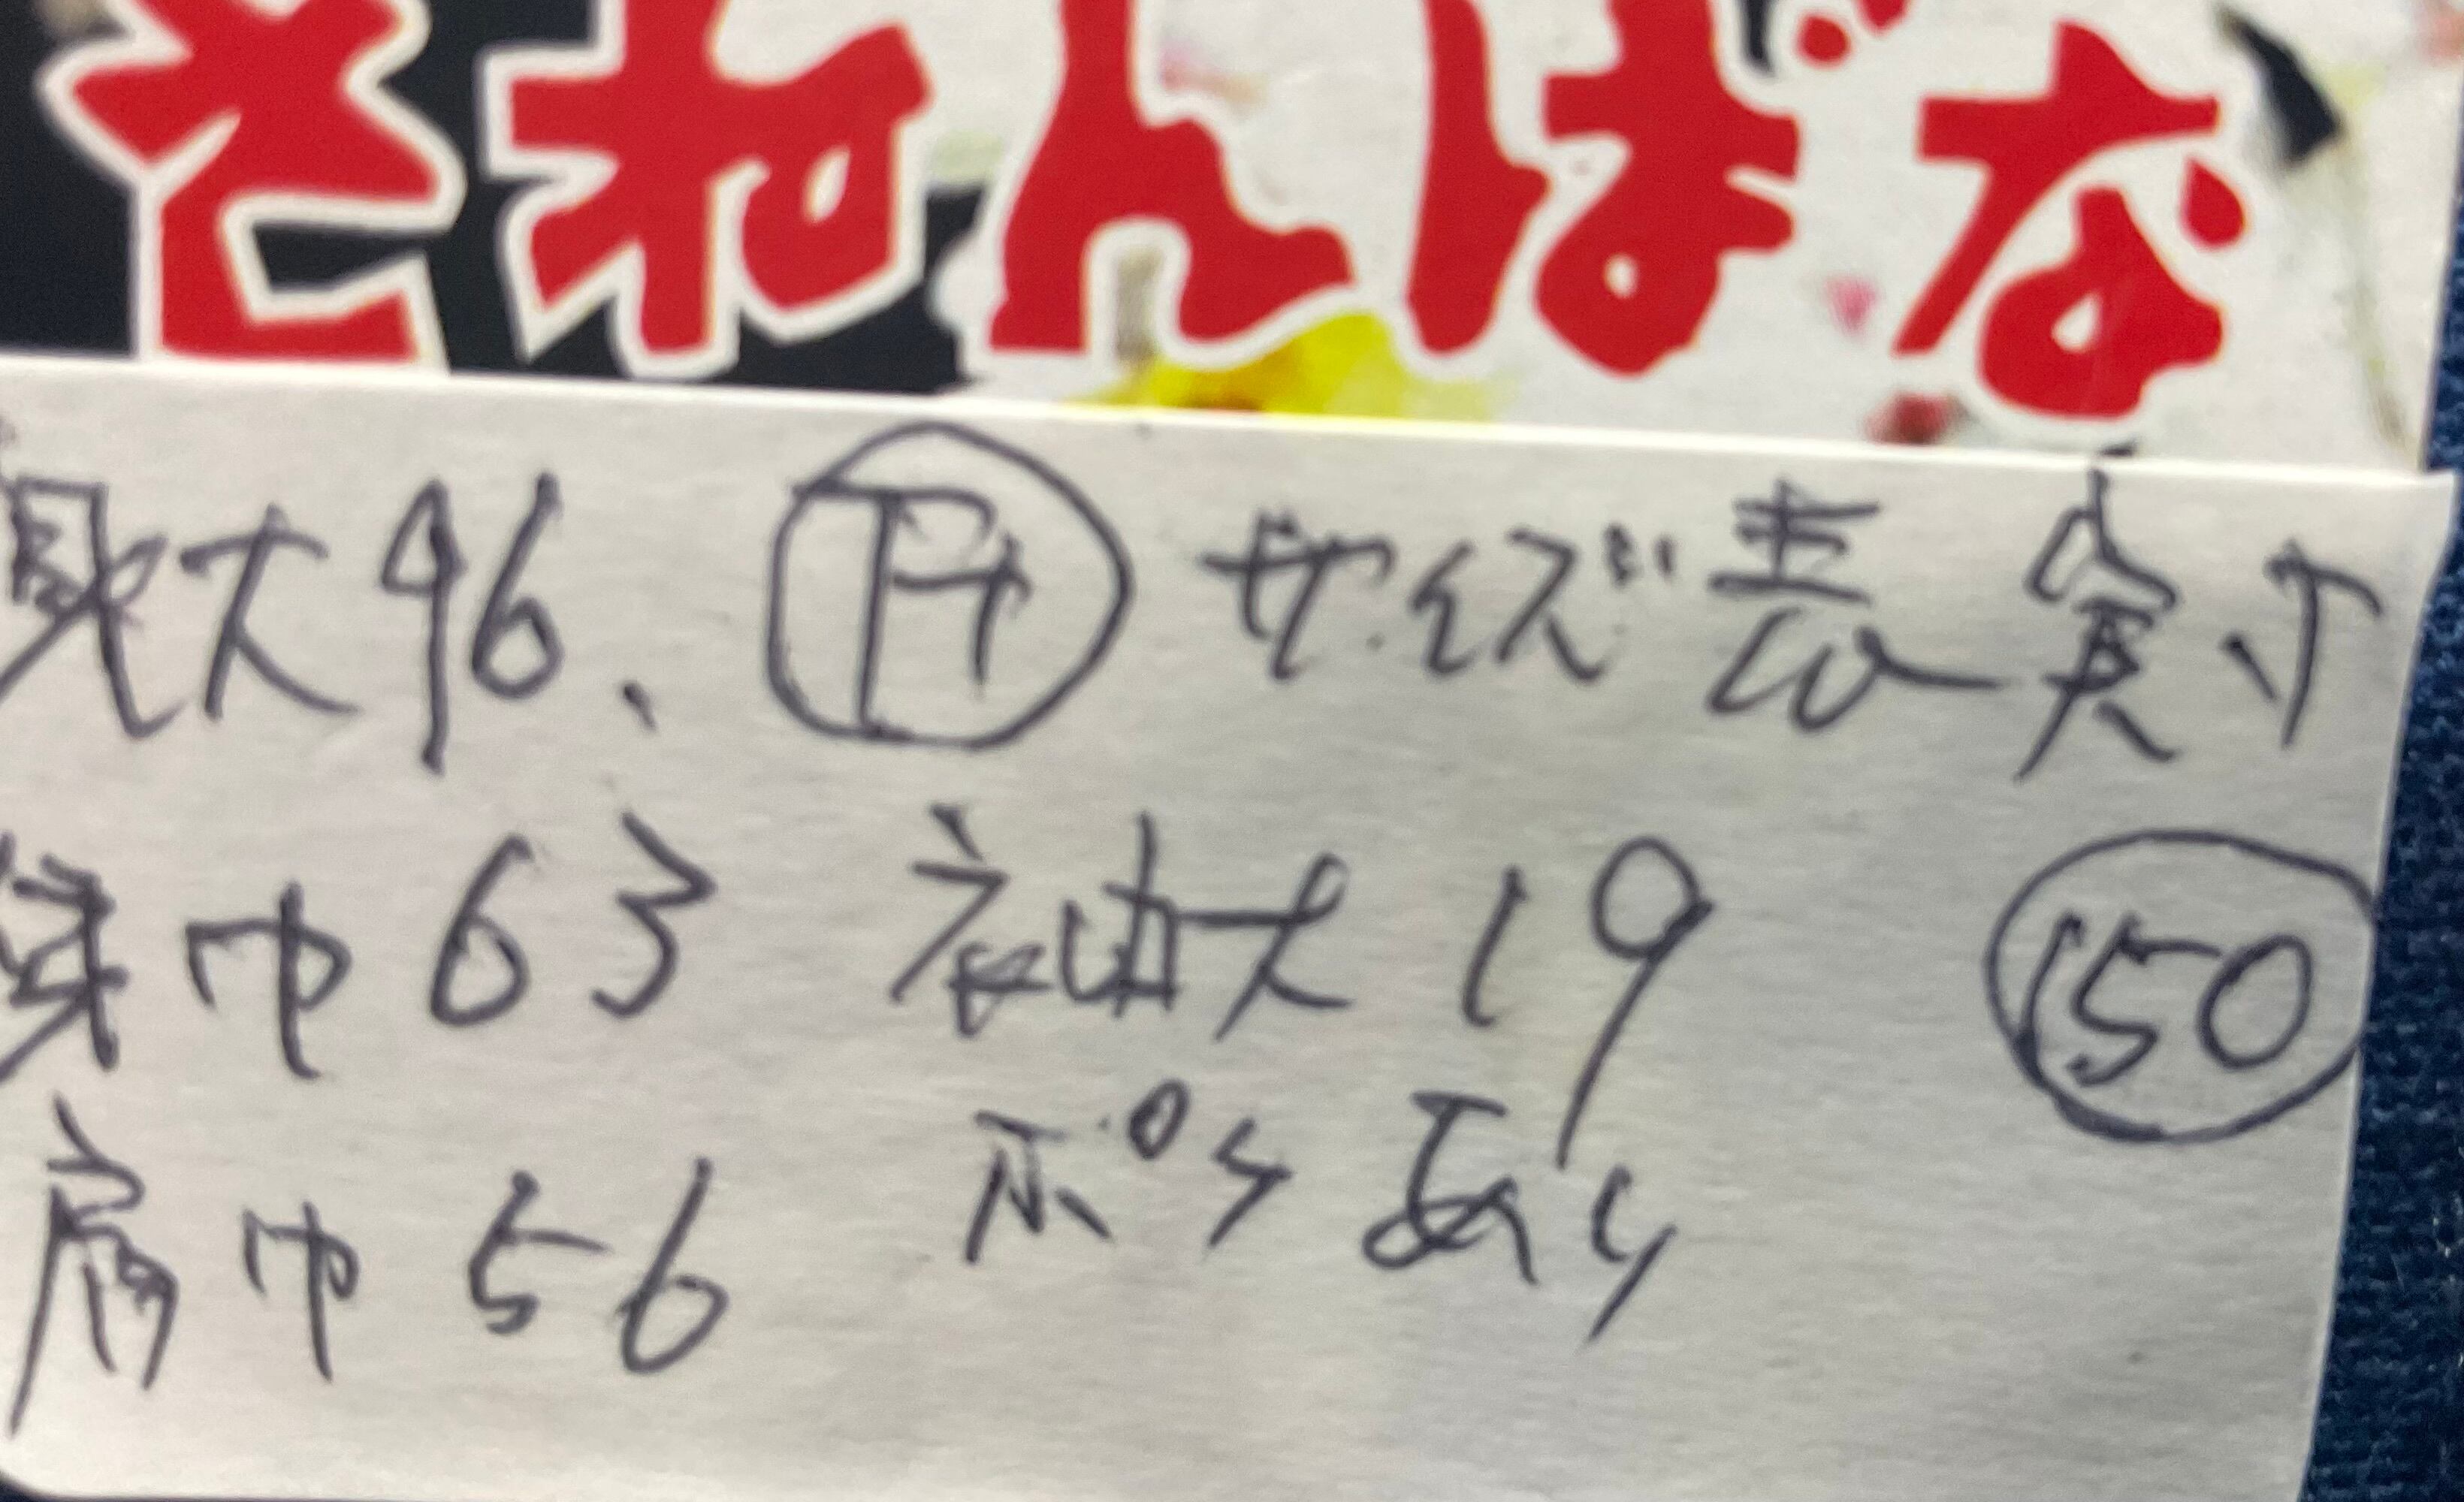 きねんばな
身丈96、 サイズ表実寸
身巾63 袖丈19 150
肩巾56 ポケあり